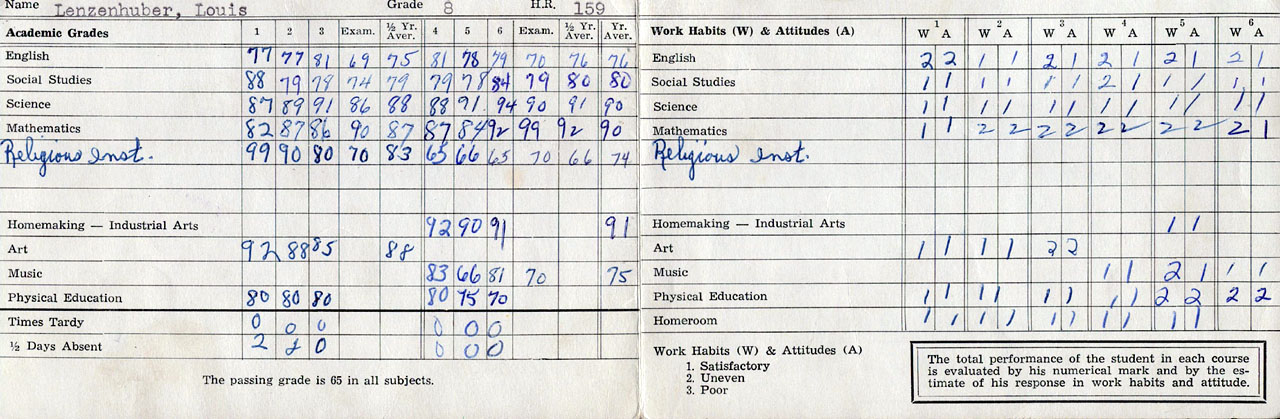 Name Lenzenhuber, Louis Grade 8 H.R. 159
Academic Grades 1 2 3 Exam. ½ Yr. Aver. 4 5 6 Exam. ½ Yr. Aver. Yr. Aver.
English 77 77 81 69 75 81 78 79 70 76 76
Social Studies 88 79 78 74 79 79 78 84 79 80 80
Science 87 89 91 86 88 88 91 94 90 91 90
Mathematics 82 87 86 90 87 87 84 92 99 92 90
Religious Inst. 99 90 80 70 83 65 66 65 70 66 74
Homemaking — Industrial Arts 92 90 91 91
Art 92 88 85 88
Music 83 66 81 70 75
Physical Education 80 80 80 80 75 70
Times Tardy 0 0 0 0 0 0
½ Days Absent 2 2 0 0 0 0
The passing grade is 65 in all subjects.
Work Habits (W) & Attitudes (A) 1 W A 2 W A 3 W A 4 W A 5 W A 6 W A
English 2 2 1 1 2 1 2 1 2 1 2 1
Social Studies 1 1 1 1 1 1 2 1 1 1 1 1
Science 1 1 1 1 1 1 1 1 1 1 1 1
Mathematics 1 1 2 2 2 2 2 2 2 2 2 1
Religious Inst.
Homemaking — Industrial Arts 1 1
Art 1 1 1 1 2 2
Music 1 1 2 1 1 1
Physical Education 1 1 1 1 1 1 1 1 2 2 2 2
Homeroom 1 1 1 1 1 1 1 1 1 1
Work Habits (W) & Attitudes (A)
1. Satisfactory
2. Uneven
3. Poor
The total performance of the student in each course
is evaluated by his numerical mark and by the es-
timate of his response in work habits and attitude.